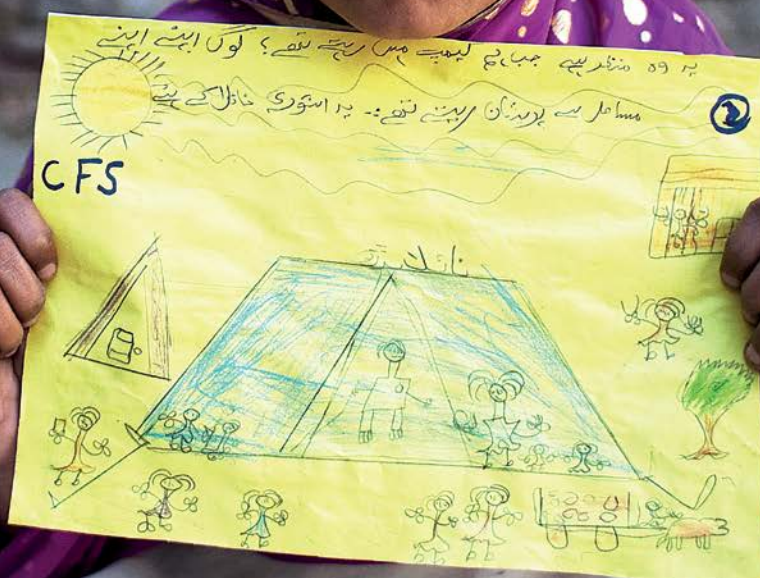 یہ وہ منظر ہے جب ہم کیمپ میں رہتے تھے؟ لوگ اپنے اپنے
مسائل سے پریشان رہتے تھے۔ یہ اسٹوری کے لئے
2
CFS